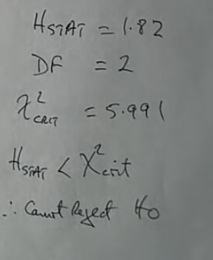 HSTAT = 1.82
DF = 2
χ²CRIT = 5.991
HSTAT < χ²crit
∴ Cannot Reject Ho